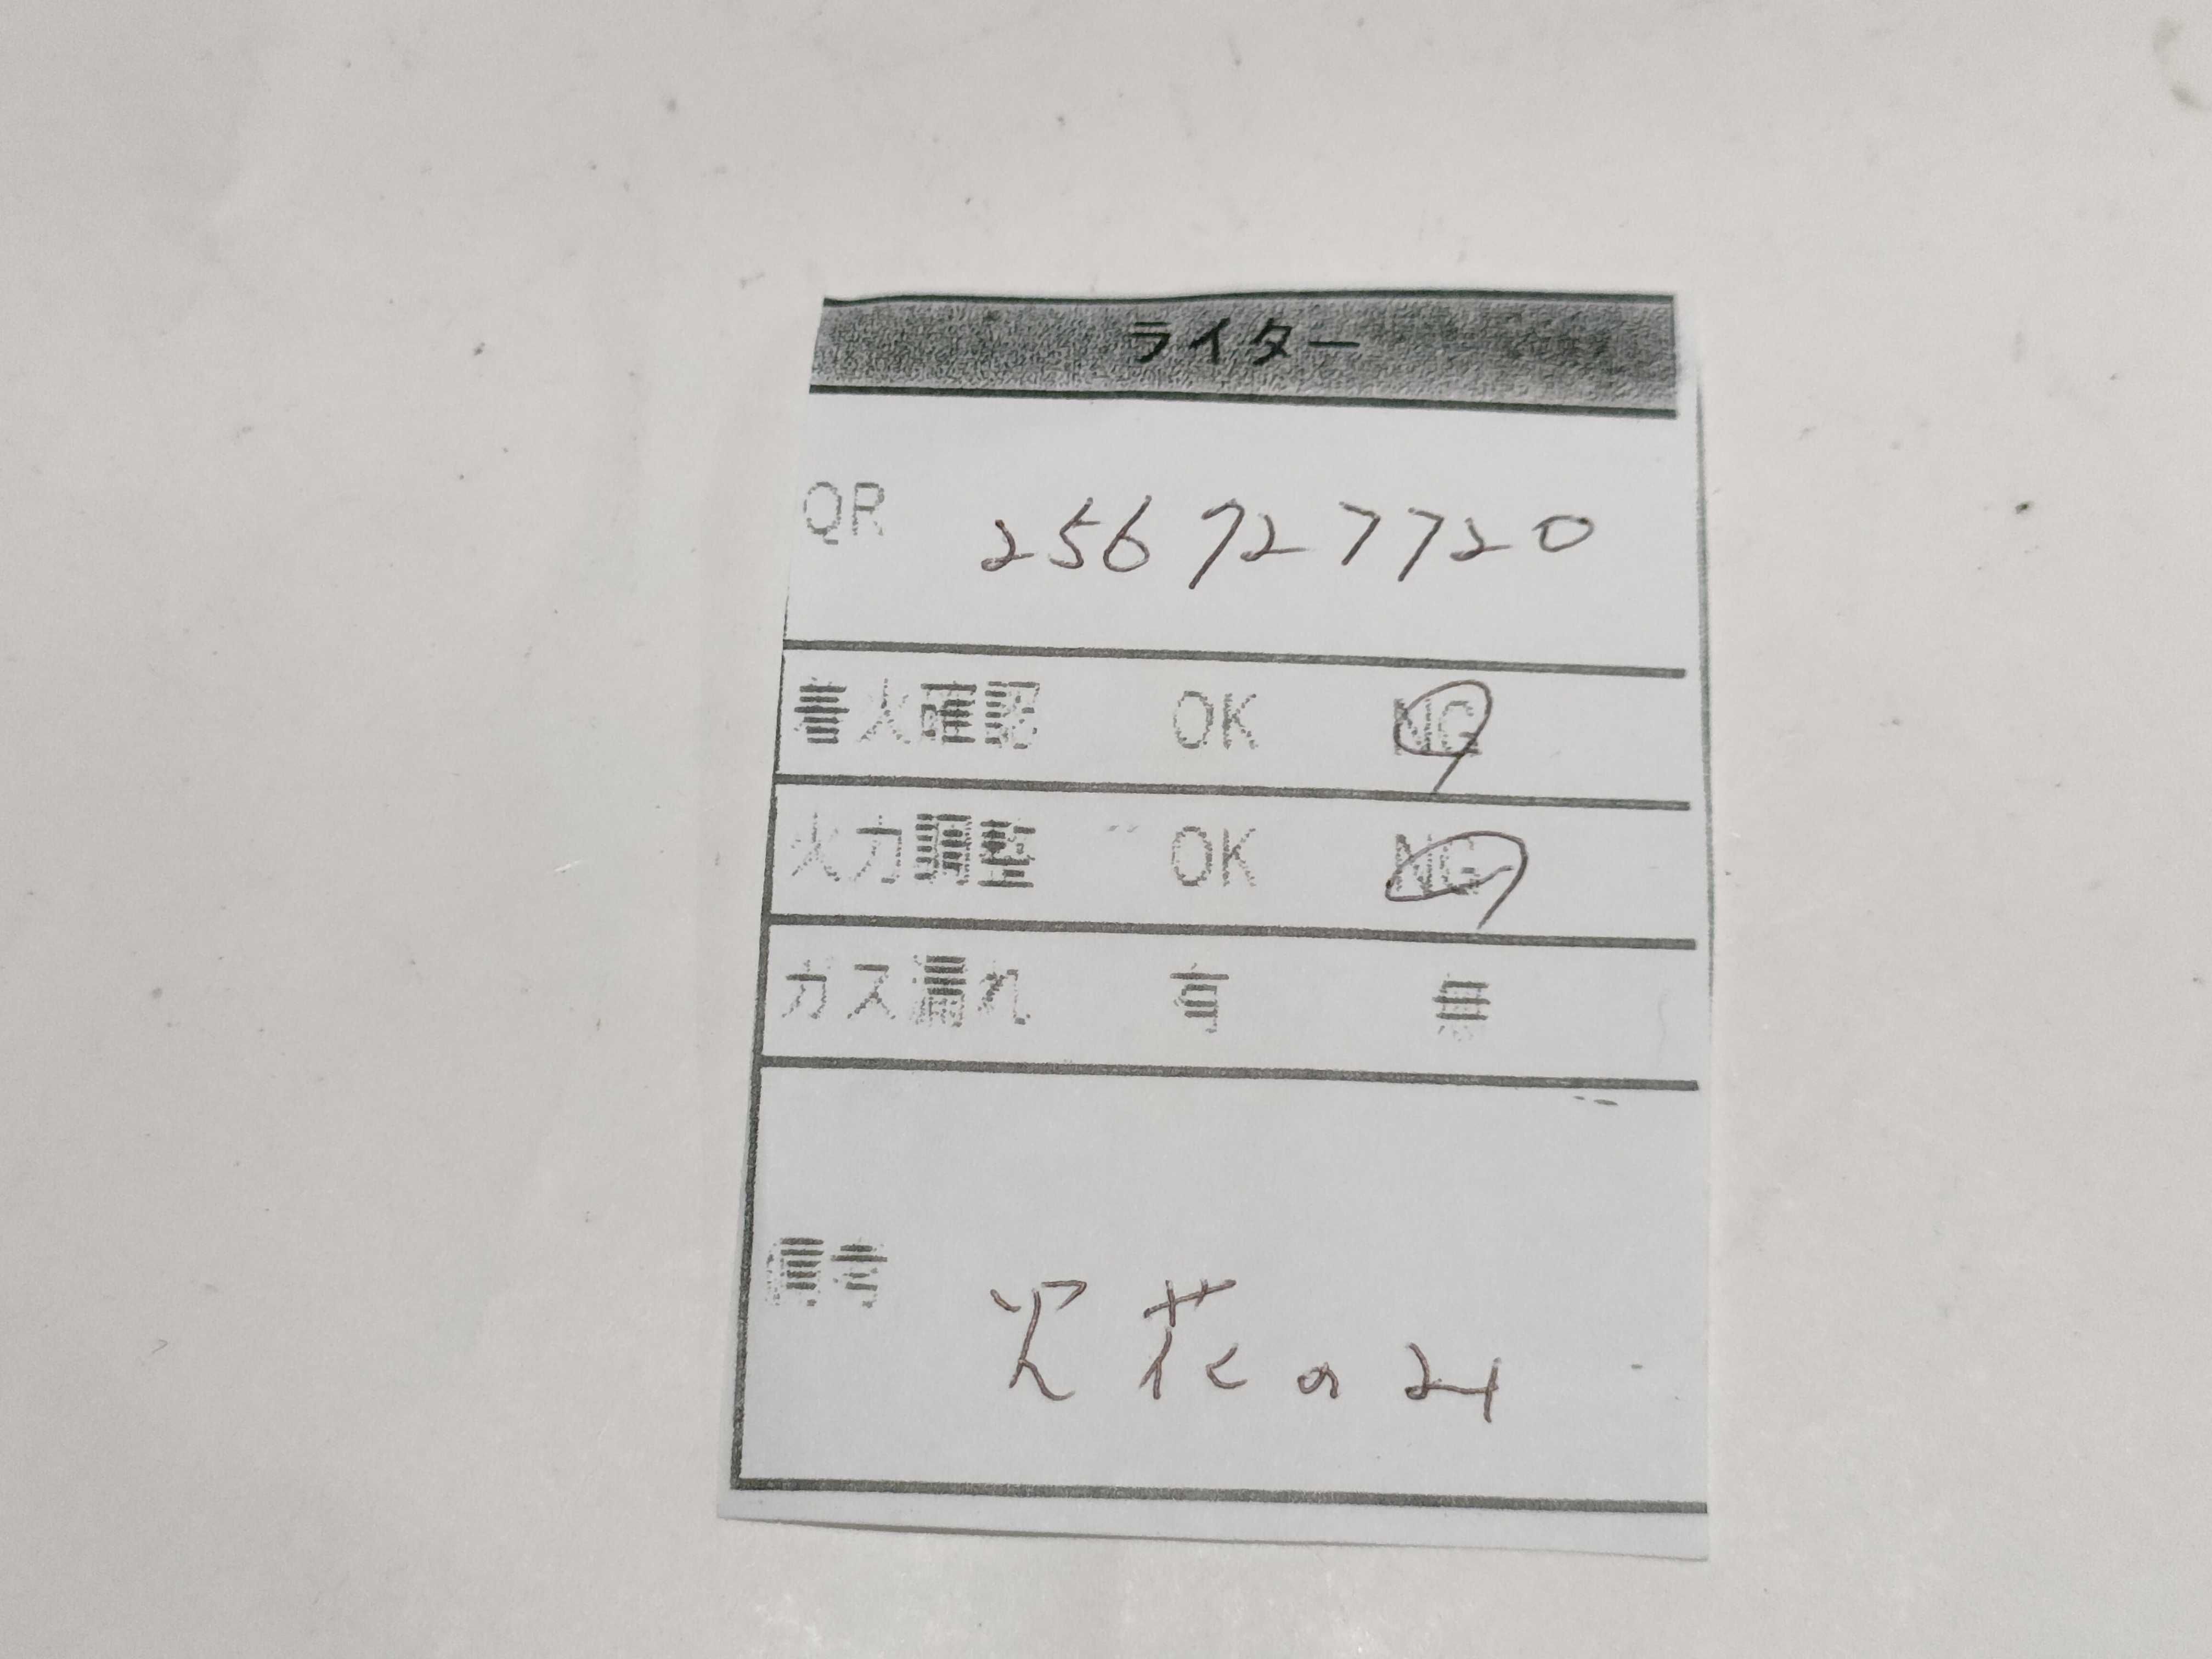 ライター
QR 256727720
着火確認 OK NG
火力調整 OK NG
ガス漏れ 有 無
備考 火花のみ